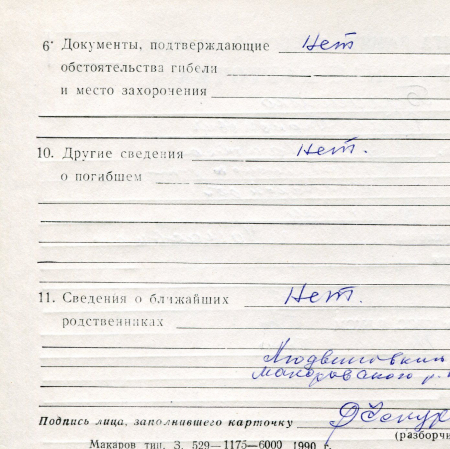 6· Документы, подтверждающие Нет
обстоятельства гибели
и место захоронения
10. Другие сведения Нет.
о погибшем
11. Сведения о ближайших Нет.
родственниках
Макаровского р.
Подпись лица, заполнившего карточку
(разборчи
Макаров тип. З. 529—1175—6000 1990 г.